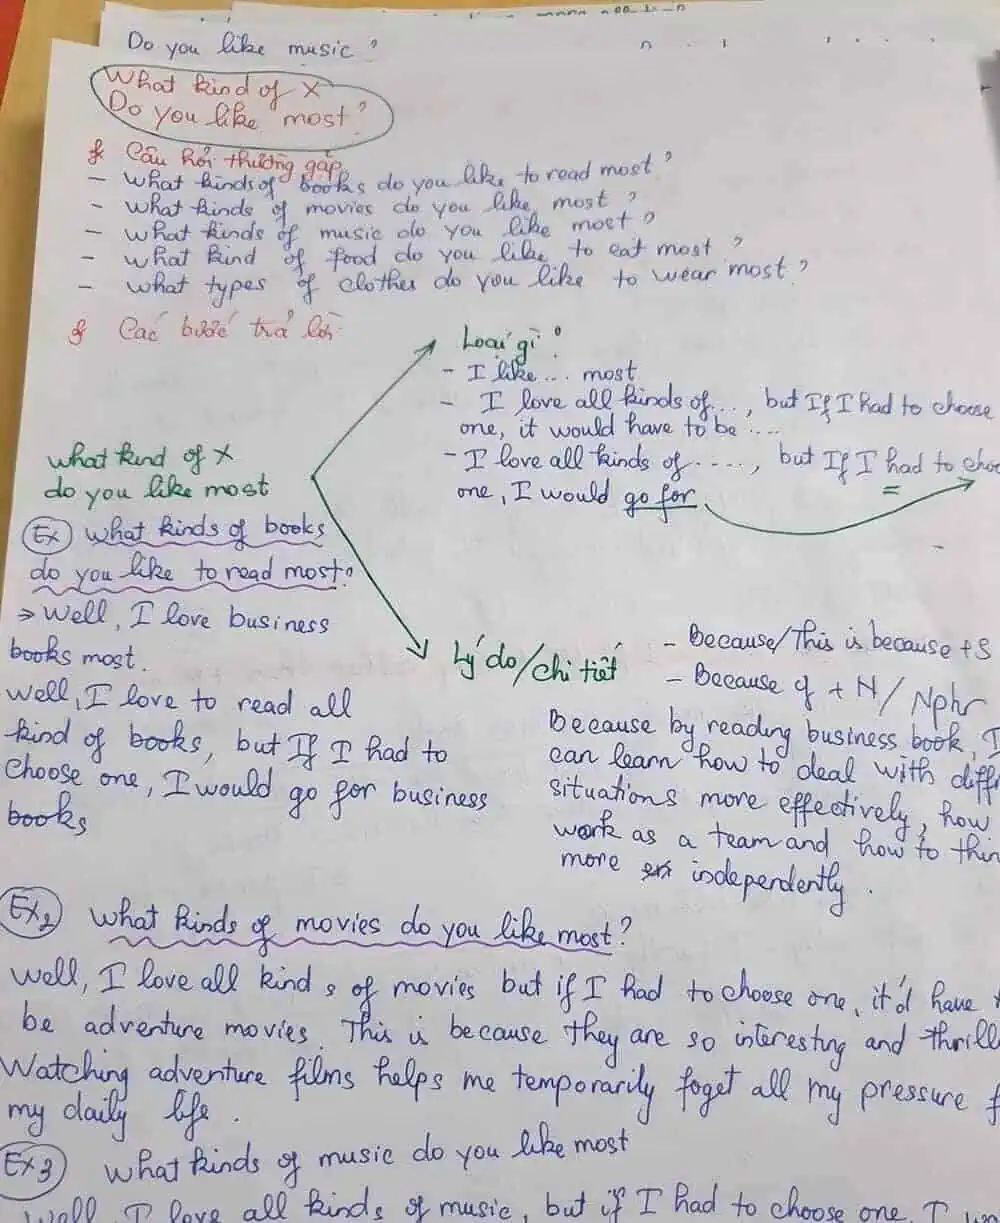 Do you like music?
What kind of X
Do you like most?
& Câu hỏi thường gặp
- what kinds of books do you like to read most?
- what kinds of movies do you like most?
- what kinds of music do you like most?
- what kind of food do you like to eat most?
- what types of clothes do you like to wear most?
& Các bước trả lời
Loại gì?
- I like .... most
- I love all kinds of..., but If I had to choose
one, it would have to be ....
- I love all kinds of ....., but If I had to
one, I would go for
what kind of X
do you like most
Ex what kinds of books
do you like to read most?
→ Well, I love business
books most.
Well, I love to read all
kind of books, but If I had to
choose one, I would go for business
books
Lý do/chi tiết
- Because/This is because + S
- Because of + N / Nphr
Because by reading business book, I
can learn how to deal with
situations more effectively, how
work as a team and how to
more independently.
Ex2 what kinds of movies do you like most?
Well, I love all kinds of movies but if I had to choose one, it'd have
be adventure movies. This is because they are so interesting and
Watching adventure films helps me temporarily foget all my pressure
my daily life.
Ex3 what kinds of music do you like most
Well, I love all kinds of music, but if I had to choose one, I